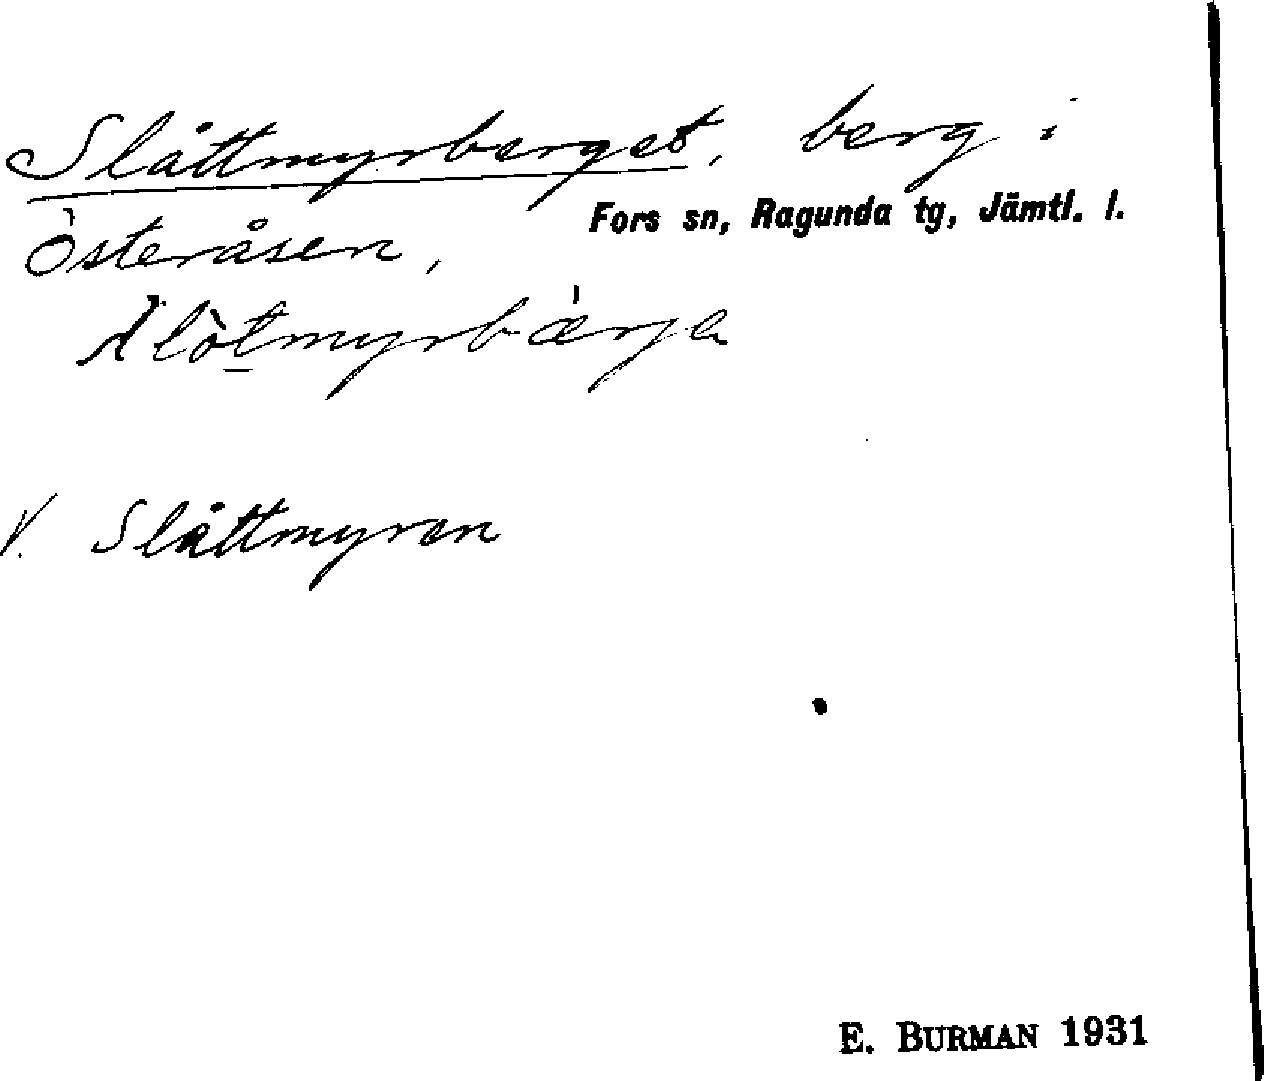 Slåttmyrberget, berg i
Fors sn, Ragunda tg, Jämtl. l.
Österåsen,
slòtmyrbærja
V. Slåttmyren
E. BURMAN 1931